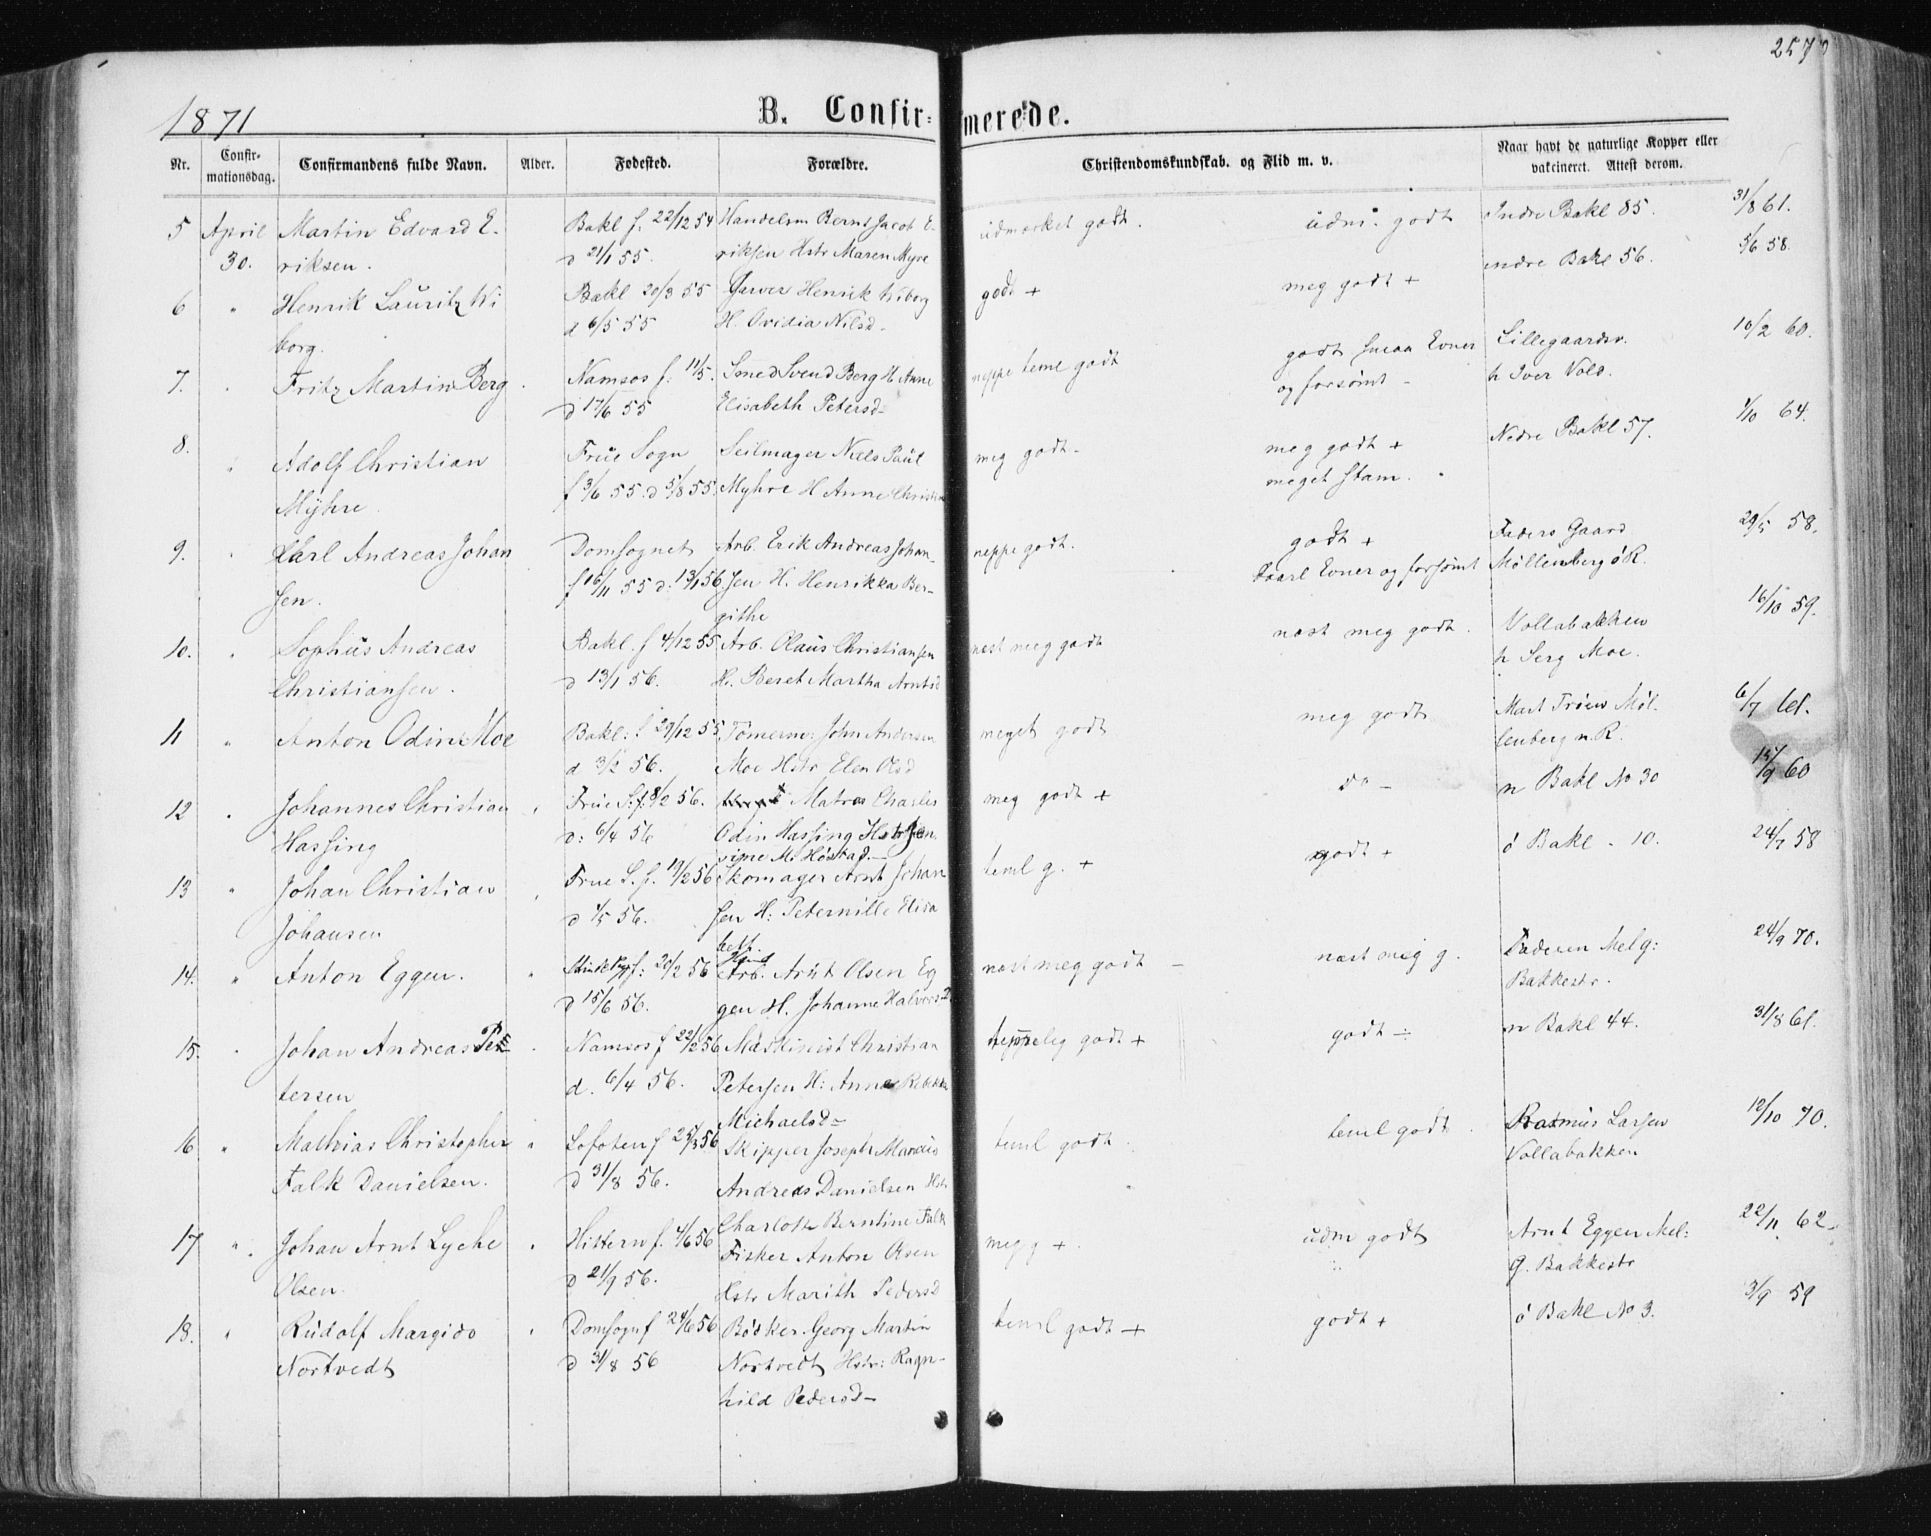 257
1871
B. Confirmerede.
Nr.
Confirmationsdag.
Confirmandens fulde Navn.
Alder.
Fødested.
Forældre.
Christendomskundskab. og Flid m. v.
Naar havt de naturlige Kopper eller
vakcineret. Attest derom.
5 April Martin Edvard E- Bakl f. 22/12 54 Handelsm Bernt Jacob E- udmærket godt. udm. godt Indre Bakl 85. 31/8 61.
30. riksen. d 21/1 55. riksen Hstr Maren Myre
6 " Henrik Lauritz Wi Bakl 20/3 55 Garver Henrik Wiborg godt + meg godt + indre Bakl 56. 5/6 58.
borg. d 6/5 55 H. Ovidia Nilsd.
7. " Fritz Martin Berg. Namsos f. 11/5. Smed Svend Berg H. Anne neppe teml godt godt smaa Evner Lillegaardsv. 16/2 60.
d 17/6 55 Elisabeth Petersd- og forsømt - h Iver Vold.
8. " Adolf Christian Frue Sogn Seilmager Niels Paul meg godt- meg godt + Nedre Bakl 57. 1/10 64.
Myhre. f 3/6 55. d 5/8 55. Myhre H Anne Christin meget stam.
9. " Carl Andreas Johan Domsognet Arb. Erik Andreas Johan- neppe godt. godt + Faders Gaard 29/5 58.
sen. f 16/11 55 d. 13/1 56 sen H. Henrikka Ber- Evner og forsømt Møllenberg ø R.
githe
10. " Sophus Andreas Bakl. f 4/12 55 Arb. Olaus Christiansen næst meg godt næst meg godt. Vollabakken 16/10 59.
Christiansen. d 13/1 56. H. Beret Martha Arntsd h Serg Moe.
11 " Anton Odin Moe Bakl: f 29/12 55 Tømerm: John Andersen meget godt meg godt Mart Trøen Møl- 6/7 61.
d 3/2 56. Moe Hstr Elen Olsd lenberg n. R.
12 " Johannes Christian Frue S. f. 8/2 56. Matros Charles meg godt + do - n Bakl No 30 60
Hassing d: 6/4 56 Odin Hassing Hstr Jen-
sine M. Høstad-
13 " Johan Christian Frue S. f. 19/2 56 Skomager Arnt Johan teml g. + godt + ø Bakl. 10. 24/7 58
Johansen d 1/5 56. sen H: Peternille Elisa
beth.
14. " Anton Eggen. f: 20/2 56 Arb. Arnt Olsen Eg næst meg godt - næst meg g. Faderen Melg: 24/9 70.
d 15/6 56. gen H. Johanne Halvorsd Bakkestr.
15. " Johan Andreas Pe- Namsos f 22/2 56 Maskinist Christian neppelig godt + godt ÷ n Bakl 44. 31/8 61.
tersen d. 6/4 56. Petersen H: Anne Rebekka
Michaelsd-
16 " Mathias Christopher Lofoten f 56 Skipper Joseph Marcus teml godt. teml godt. Rasmus Larsen 12/10 70.
Falk Danielsen. d 31/8 56. Andreas Danielsen Hstr Vollabakken
Charlotte Berntine Falk
17 " Johan Arnt Lyche Hittern f. 4/6 56 Fisker Anton Olsen meg g +. udm godt Arnt Eggen Mel: 22/11 62.
Olsen. d 21/9 56. Hstr Marith Pedersd G. Bakkestr
18. " Rudolf Margido Domsogn f 24/6 56 Bødker Georg Martin teml godt + godt + ø Bakl No 3. 3/9 59
Nortvedt d 31/8 56 Nortvedt Hstr: Ragn-
hild Pedersd-